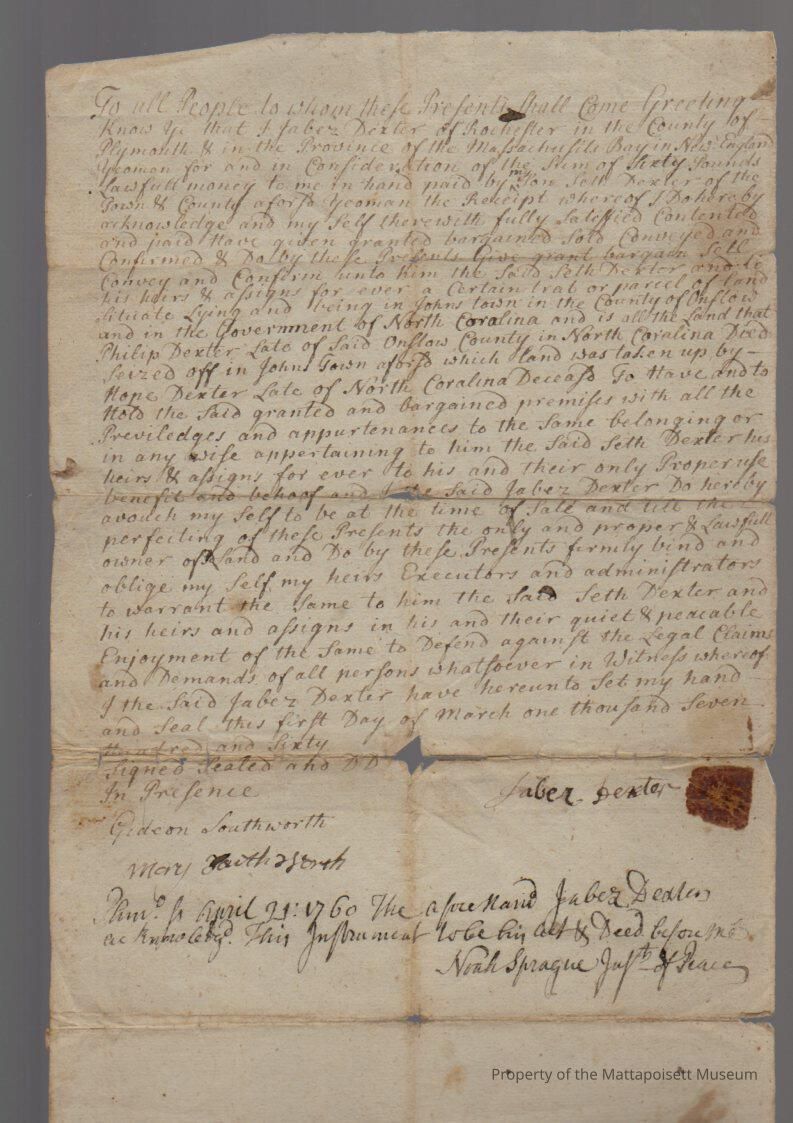 To all People to whom these Presents shall Come Greeting
Know Ye that I Jabez Dexter of Rochester in the County of
Plymouth & in the Province of the Massachusets Bay in New England
Yeoman for and in Consideration of the Sum of Sixty Pounds
Lawfull money to me in hand paid by my Son Seth Dexter of the
Town & County afors.d Yeoman the Receipt whereof I Do hereby
acknowledge and my Self therewith fully Satesfied Contented
and paid Have given granted bargained Sold Conveyed and
Confirmed & Do by these Presents Give grant bargain Sell
Convey and Confirm unto him the Said Seth Dexter and to
his heirs & assigns for ever a Certain trat or parcel of land
Situate Lying and being in Johns town in the County of Onslow
and in the Government of North Coralina and is all the Land that
Philip Dexter Late of Said Onslow County in North Coralina Died
Seized off in Johns Town afors.d which land was taken up by
Hope Dexter Late of North Coralina Deceas.d To Have and to
Hold the Said granted and bargained premises with all the
Previledges and appurtenances to the Same belonging or
in any wise appertaining to him the Said Seth Dexter his
heirs & assigns for ever to his and their only Proper use
benefit and behoof and I the Said Jabez Dexter Do hereby
avouch my Self to be at the time of Sale and till the
perfecting of these Presents the only and proper & Lawfull
owner of Sand and Do by these Presents firmly bind and
oblige my Self my heirs Executors and administrators
to warrant the Same to him the Said Seth Dexter and
his heirs and assigns in his and their quiet & peacable
Enjoyment of the Same to Defend against the Legal Claims
and Demands of all persons whatsoever in Witness whereof
I the Said Jabez Dexter have hereunto Set my hand
and Seal this first Day of March one thousand Seven
Hundred and Sixty
Signed Sealed and DD
In Presence
Jabez Dexter
Gideon Southworth
Mary Southworth
April 21: 1760 The aforenamd Jabez Dexter
acknowledg.d This Instrument to be his act & Deed before me
Noah Sprague Just. of Peace
Property of the Mattapoisett Museum